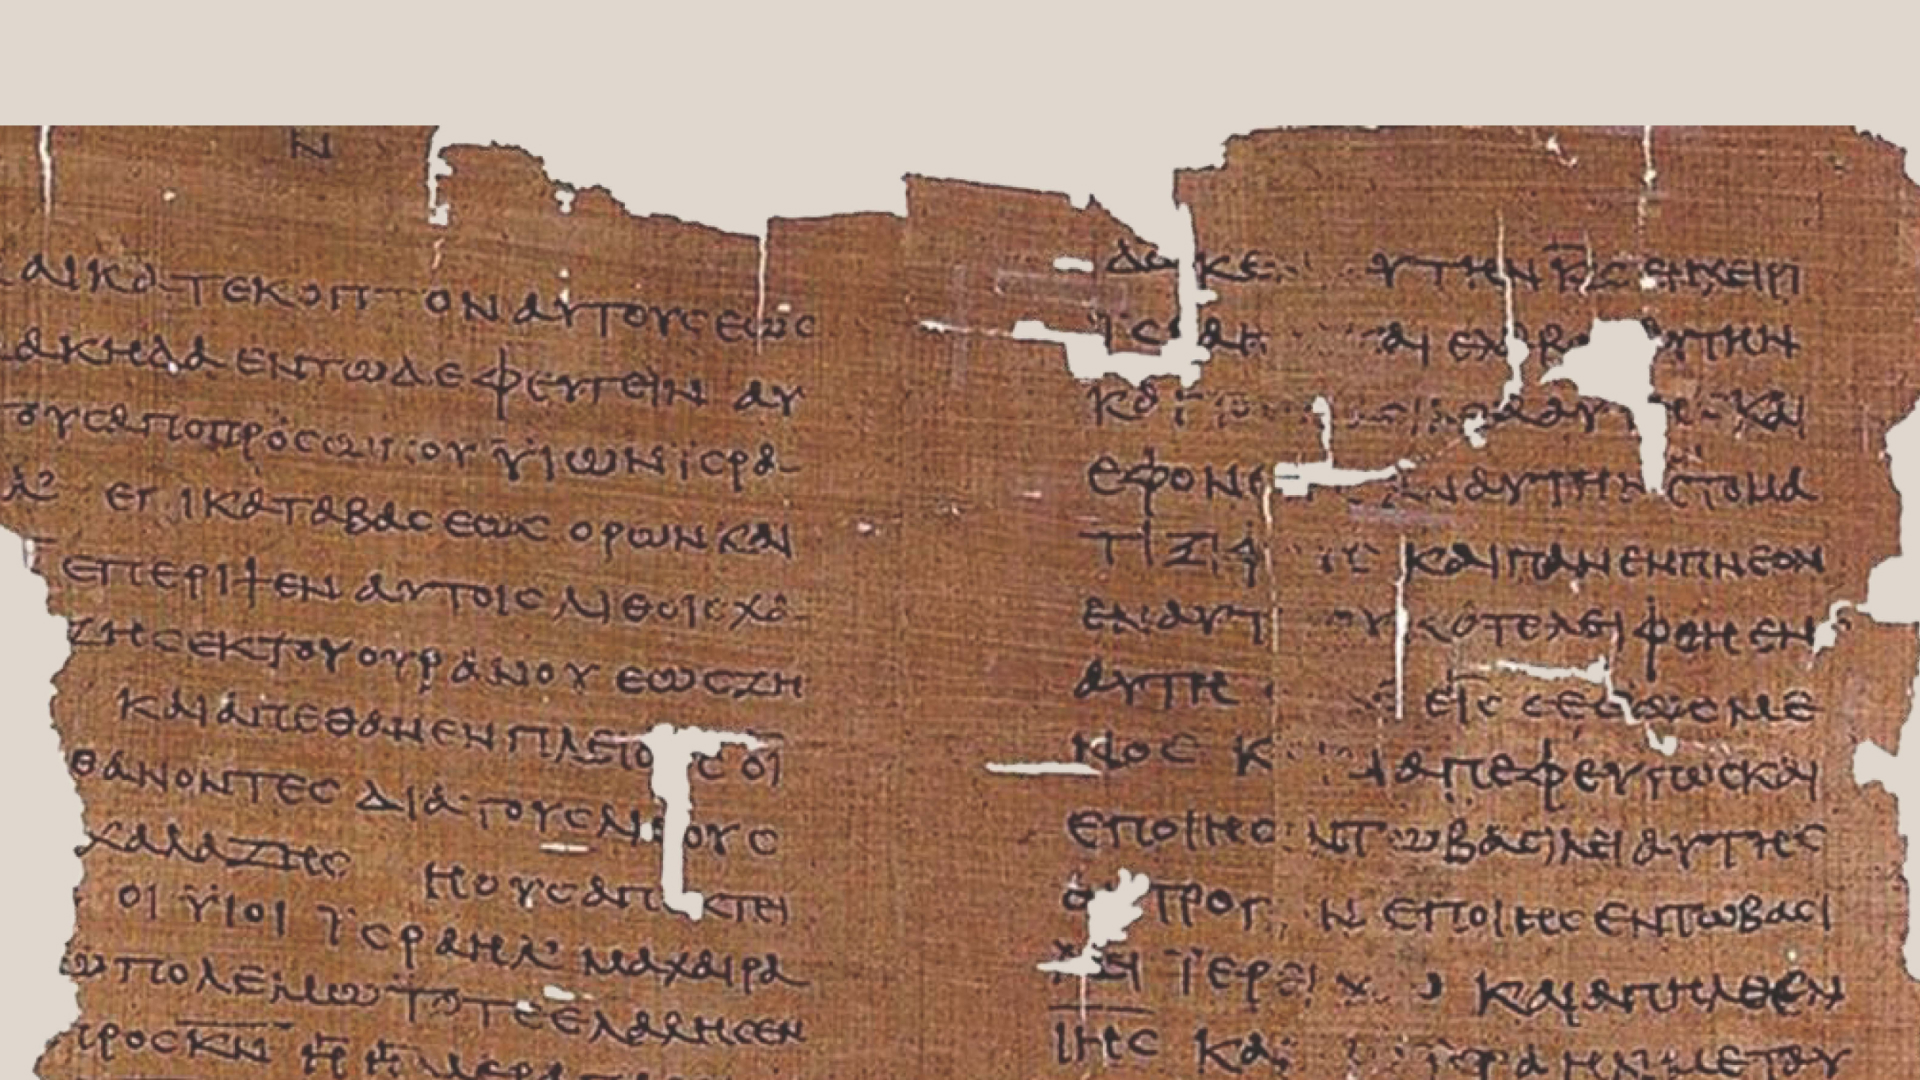 ν
αι κατεκοπτον αυτουϲ εωϲ
μακηδα εν τω δε φευγειν αυ
τουϲ απο προϲωπου ϋιων ϊϲρα
ηλ επι καταβαϲεωϲ ορων και
επεριψεν αυτοιϲ λιθοιϲ χα
ζηϲ εκ του ουρανου εωϲ ζη
και απεθανεν πλειουϲ οι
θανοντεϲ δια τουϲ λιθουϲ
χαλαζηϲ η ουϲ απεκτι
οι ϋιοι ϊϲραηλ μαχαιρα
ω πολεμω τοτε ελαληϲεν
προϲ κ̅ν̅ η ημερα
δωκεν αυτην κ̅ϲ̅ εν χειρι
ϊϲραηλ και ελαβον αυτην
και
εφονευϲαν αυτην ϲτομα
τι ξιφουϲ και παν ενπνεον
εν αυτη ου κατελειφθη εν
αυτη ειϲ ϲεϲωϲμε
νοϲ και διαπεφευγωϲ και
εποιηϲαν τω βαϲιλει αυτηϲ
ον τροπον εποιηϲεν τω βαϲι
λει ϊερειχω και απηλθεν
ι̅η̅ϲ̅ και ϊϲραηλ μετ ου